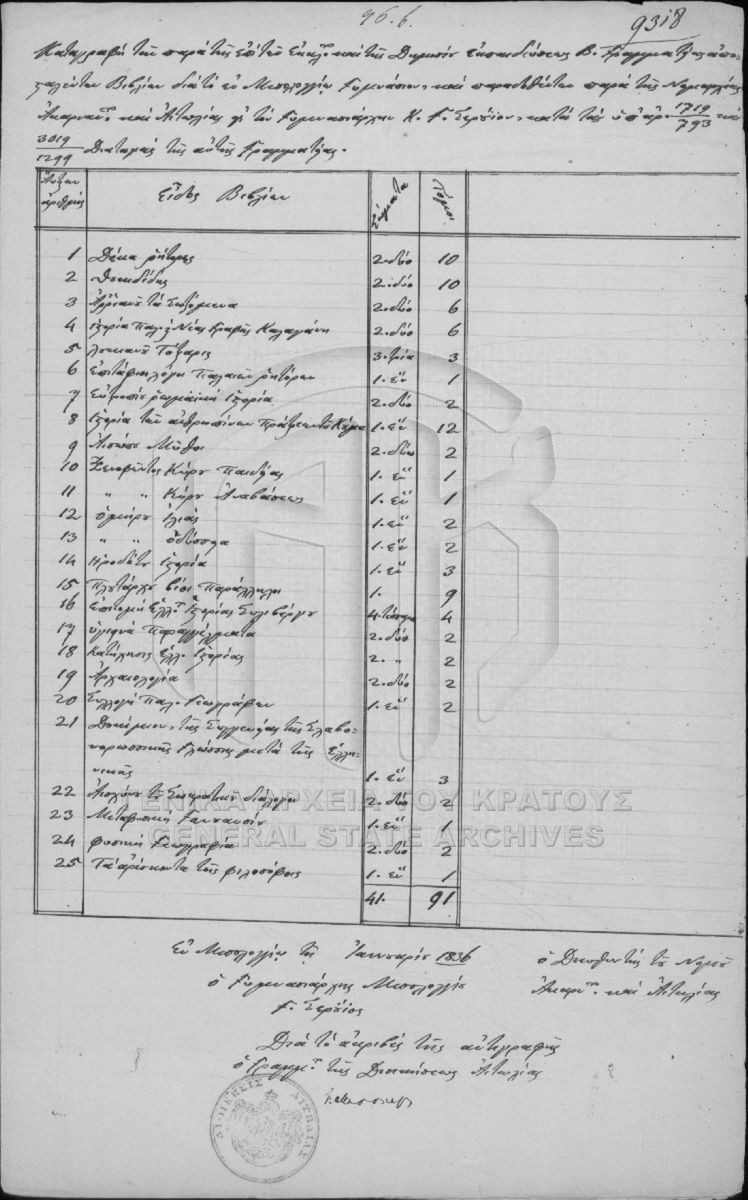 96.b.
9318
Καταγραφὴ τῶν παρὰ τῆς ἐπὶ τῶν Ἐκκλ. καὶ τῆς Δημοσίου Ἐκπαιδεύσεως Β. Γραμματείας ἀπο-
σταλέντων Βιβλίων διὰ τὸ ἐν Μεσολογγίῳ Γυμνάσιον, καὶ παραδοθέντων παρὰ τῆς Νομαρχίας
Ἀκαρναν. καὶ Αἰτωλίας εἰς τὸν Γυμνασιάρχην Κ. Γ. Σερούϊον, κατὰ τὰς ὑπ' ἀρ. 1719/793 καὶ
3019/1299 Διαταγὰς τῆς αὐτῆς Γραμματείας.
Αὔξων ἀριθμὸς Εἶδος Βιβλίων Σώματα Τόμοι
1 Δέκα ῥήτορες 2. δύο 10
2 Θουκυδίδης 2. δύο 10
3 Ἀρριανοῦ τὰ Σωζόμενα 2. δύο 6
4 Ἱστορία Παλ. καὶ Νέας Γραφῆς 2. δύο 6
5 Λουκιανοῦ Τόξαρις 3. τρία 3
6 Ἐπιτάφιοι λόγοι Παλαιῶν ῥητόρων 1. ἓν 1
7 Εὐτροπίου ῥωμαϊκὴ ἱστορία 2. δύο 2
8 Ἱστορία τῶν ἀνθρωπίνων Πράξεων τοῦ Κούμα 1. ἓν 12
9 Αἰσώπου Μῦθοι 2. δύο 2
10 Ξενοφῶντος Κύρου Παιδείας 1. ἓν 1
11 " " Κύρου Ἀναβάσεως 1. ἓν 1
12 Ὁμήρου Ἰλιὰς 1. ἓν 2
13 " " Ὀδύσσεια 1. ἓν 2
14 Ἡροδότου Ἱστορία 1. ἓν 3
15 Πλουτάρχου βίοι Παράλληλοι 1. 9
16 Ἐπιτομὴ Ἑλλ. Ἱστορίας 4. τέσσαρα 4
17 ὑγιεινὰ Παραγγέλματα 2. δύο 2
18 Κατήχησις Ἑλλ. ἱστορίας 2. " 2
19 Ἀρχαιολογία 2. δύο 2
20 Συλλογὴ Παλ. Γεωγράφων 1. ἓν 2
21 Δοκίμιον, τῆς Συγγενείας τῆς Σλαβο-
νορωσσικῆς Γλώσσης μετὰ τῆς Ἑλλη-
νικῆς 1. ἓν 3
22 Αἰσχίνου τοῦ Σωκρατικοῦ διάλογοι 2. δύο 2
23 Μεταφυσικὴ 1. ἓν 1
24 φυσικὴ Γεωγραφία 2. δύο 2
25 Τὰ ἀρέσκοντα τοῖς φιλοσόφοις 1. ἓν 1
41. 91
ΓΕΝΙΚΑ ΑΡΧΕΙΑ ΤΟΥ ΚΡΑΤΟΥΣ
GENERAL STATE ARCHIVES
Ἐν Μεσολογγίῳ τῇ Ἰανουαρίου 1836
ὁ Γυμνασιάρχης Μεσολογγίου
Γ. Σερούϊος
ὁ Διευθυντὴς τοῦ Νομοῦ
Ἀκαρν. καὶ Αἰτωλίας
Διὰ τὸ ἀκριβὲς τῆς ἀντιγραφῆς
ὁ Γραμμ. τῆς Διοικήσεως Αἰτωλίας
ΔΙΟΙΚΗΣΙΣ ΑΙΤΩΛΙΑΣ